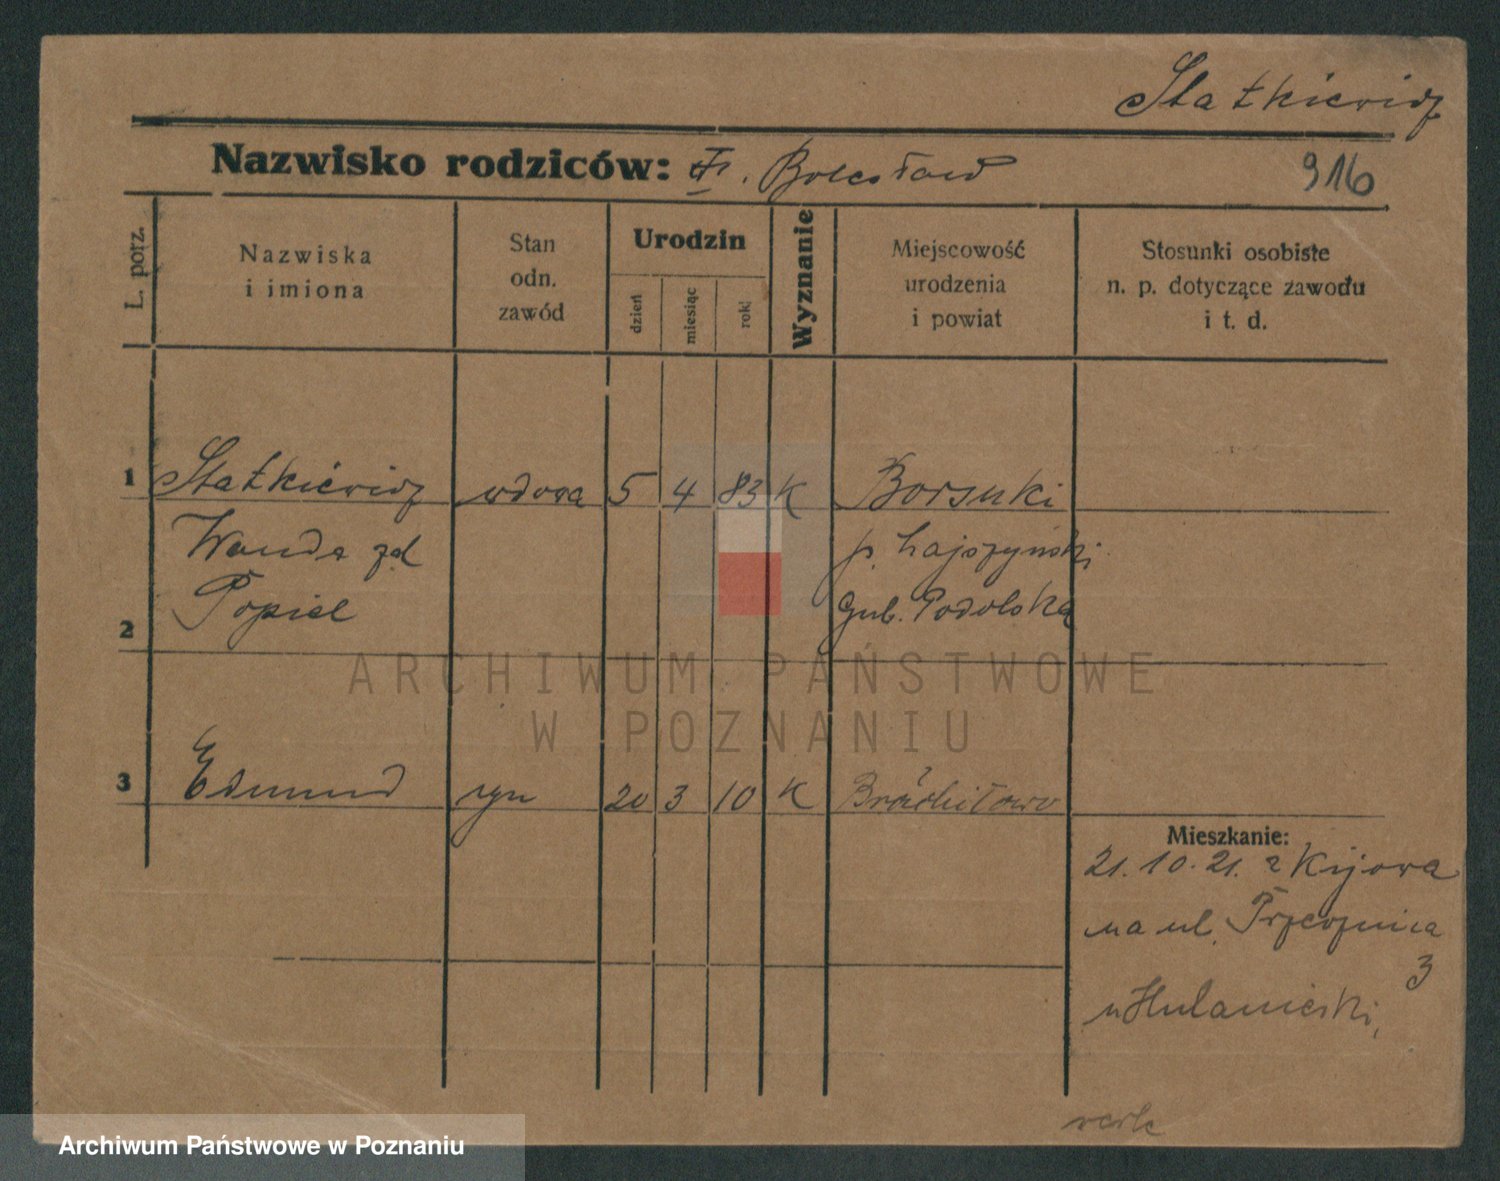 Statkiewicz
Nazwisko rodziców: Bolesław
916
L. porz.
Nazwiska
i imiona
Stan
odn.
zawód
Urodzin
dzień
miesiąc
rok
Wyznanie
Miejscowość
urodzenia
i powiat
Stosunki osobiste
n. p. dotyczące zawodu
i t. d.
1 Statkiewicz wdowa 5 4 83 K Borsuki
Wanda zd p. Hajszyński
Popiel gub. Podolska
2
ARCHIWUM PAŃSTWOWE
W POZNANIU
3 Edmund syn 20 3 10 K
Mieszkanie:
21. 10. 21. z Kijowa
na ul. Przecznica
3
u Hulanicki,
verte
Archiwum Państwowe w Poznaniu